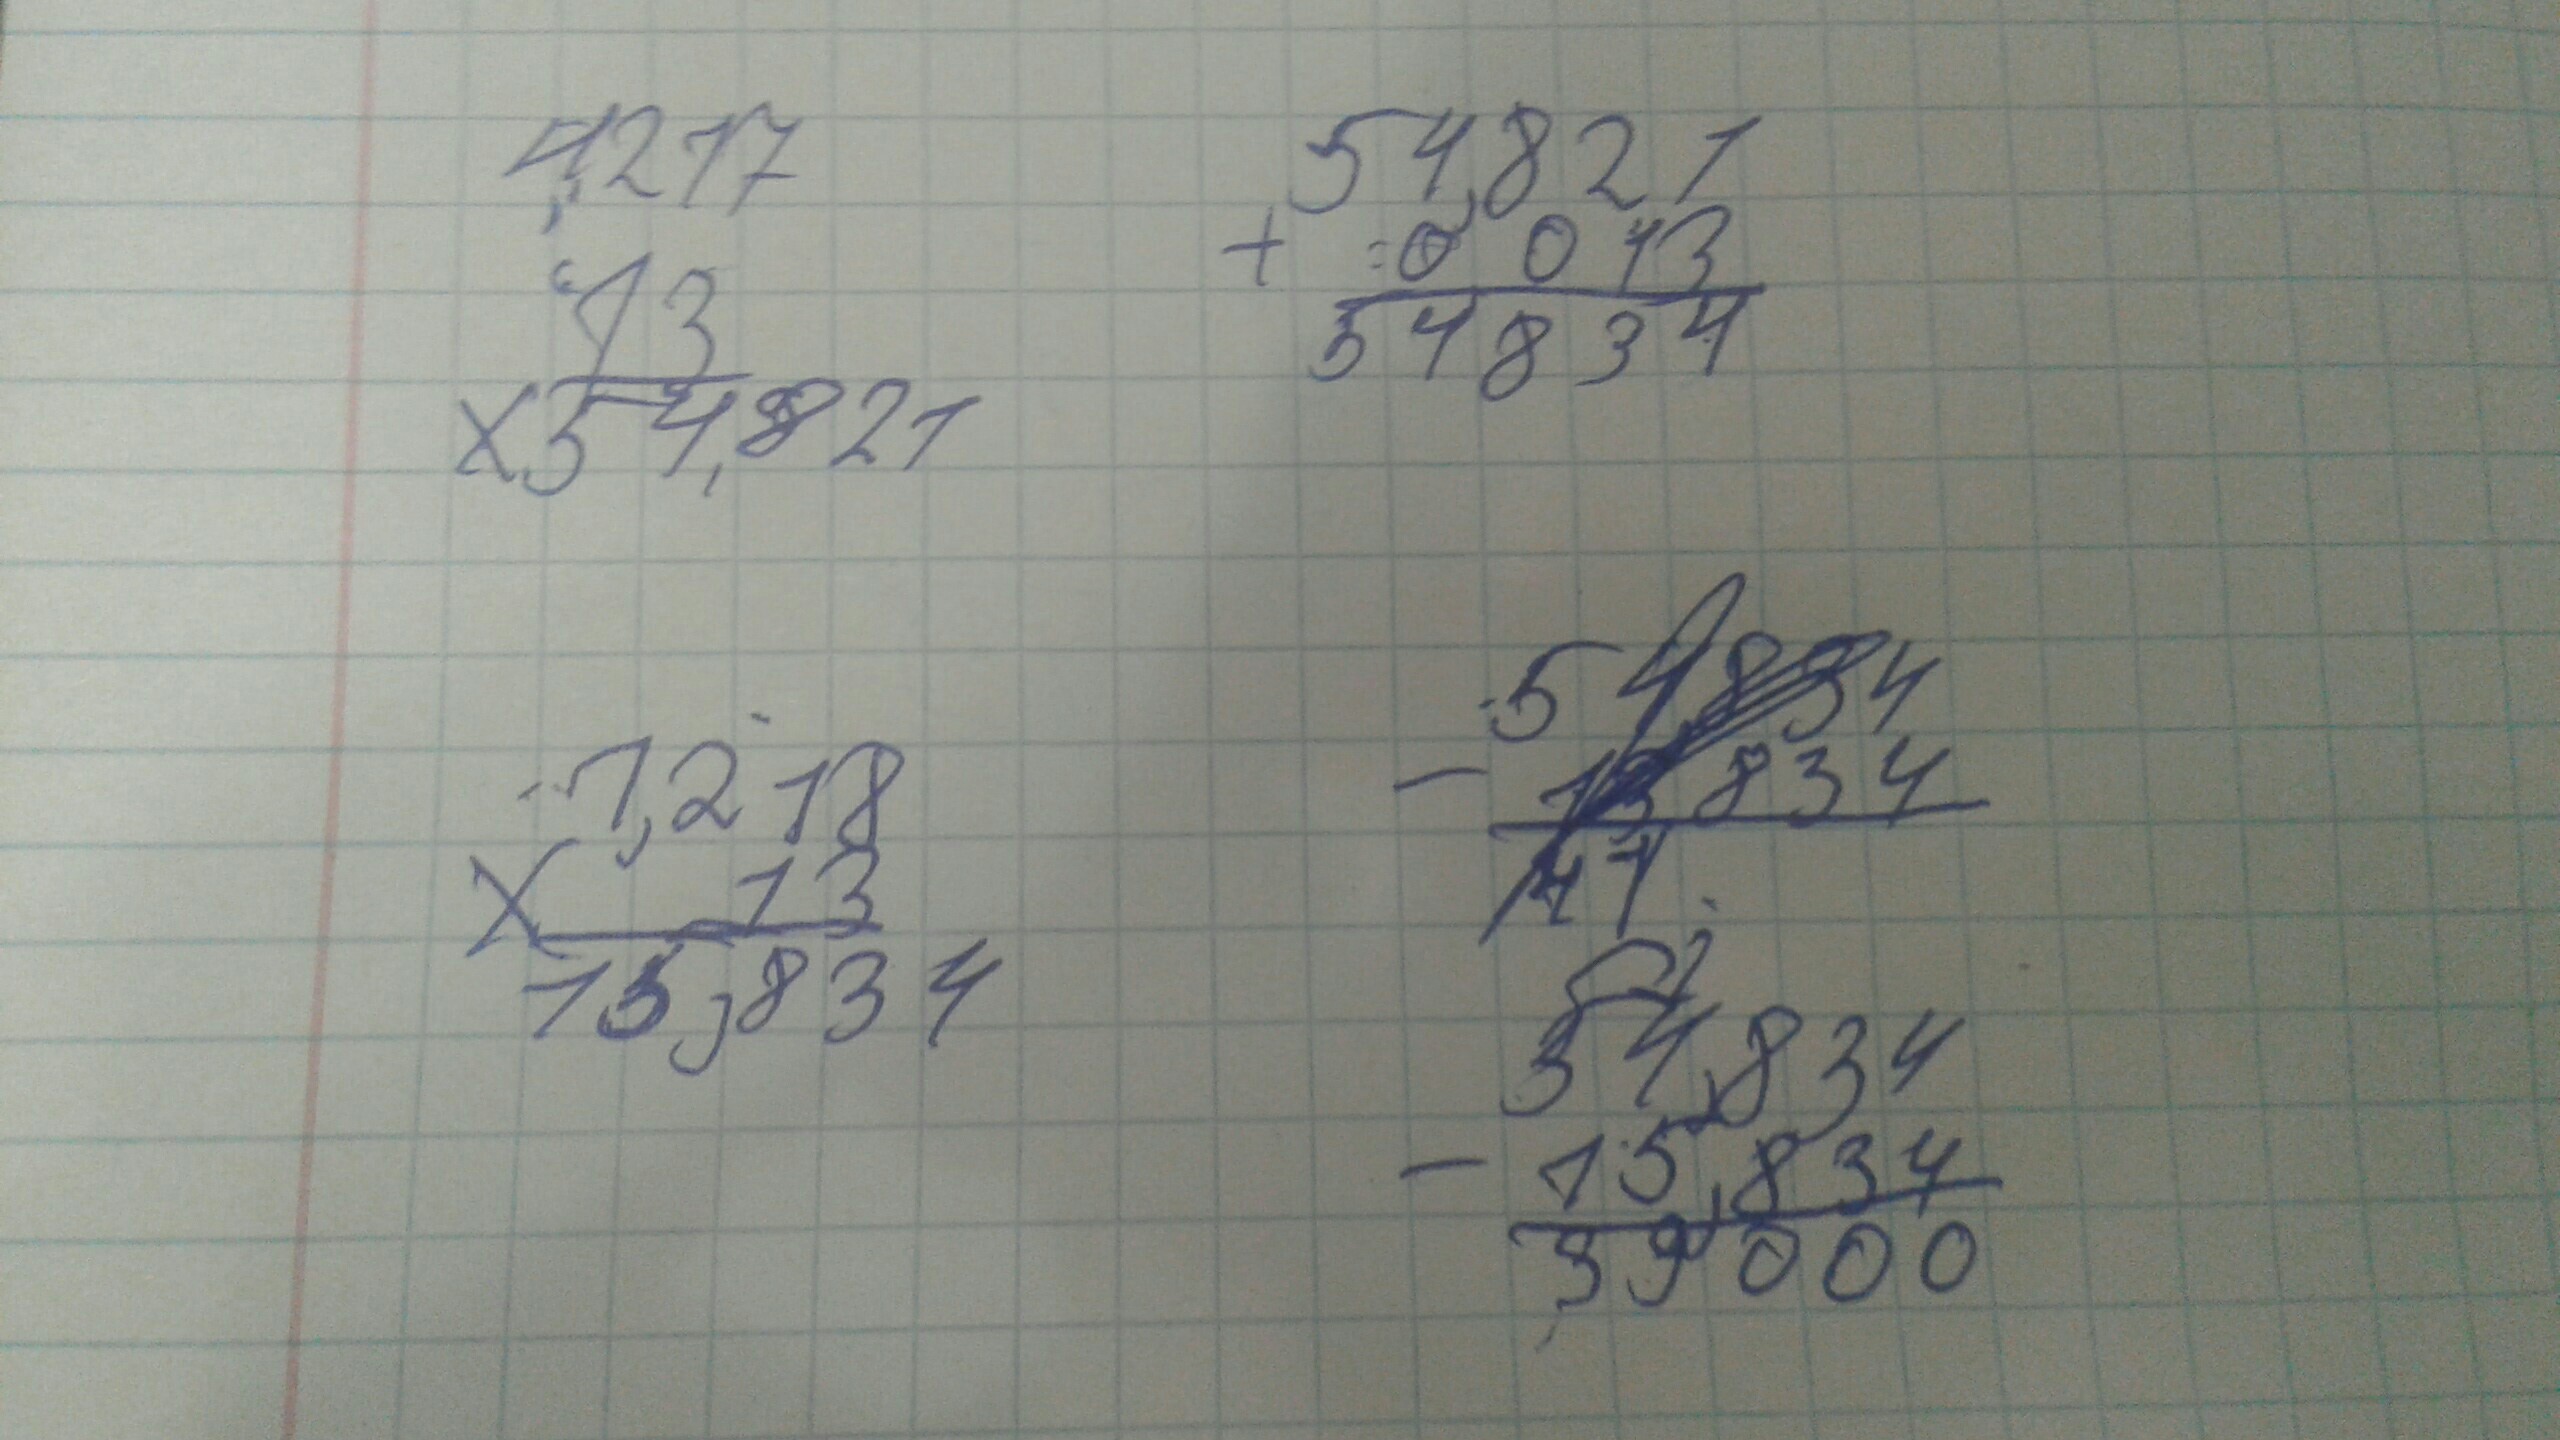 4,217
13
× 54,821
54,821
+ 0 013
54834
1,218
× 13
15,834
54834
- 13834
41
54,834
- 15,834
39,000